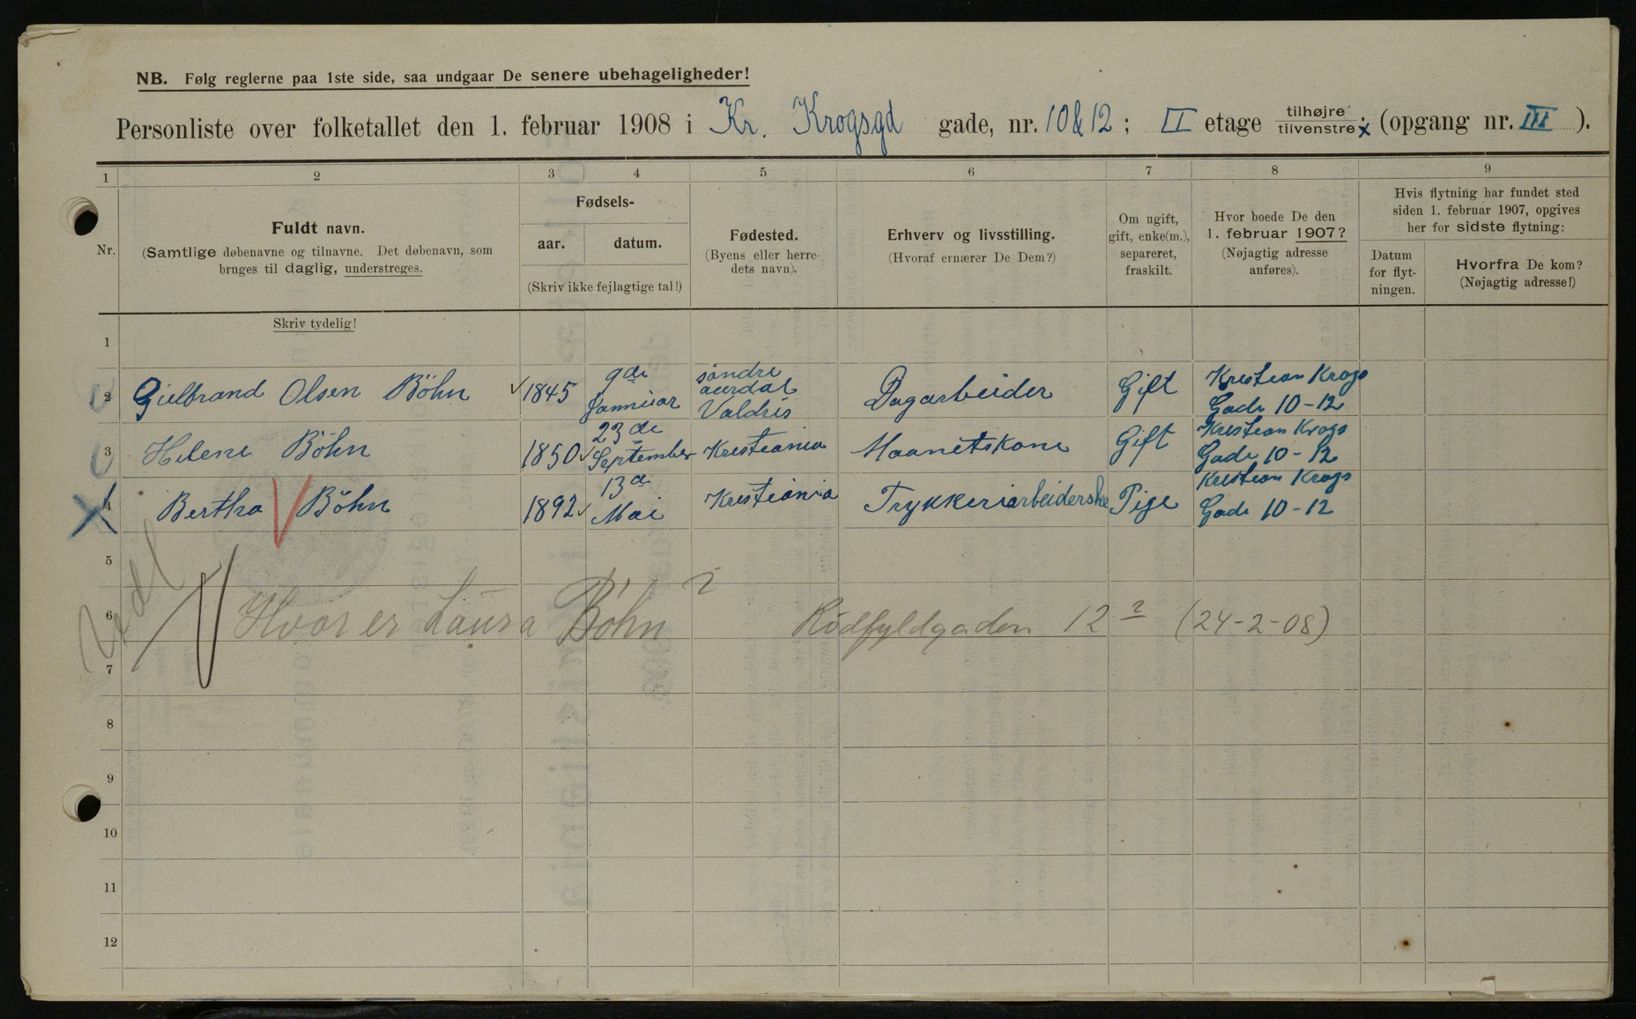 NB. Følg reglerne paa 1ste side, saa undgaar De senere ubehageligheder!
Personliste over folketallet den 1. februar 1908 i Kr. Krogsgd gade, nr. 10 & 12; II etage tilhøjre tilvenstre x; (opgang nr. III ).
1 2 3 4 5 6 7 8 9
Nr.
Fuldt navn.
(Samtlige døbenavne og tilnavne. Det døbenavn, som
bruges til daglig, understreges.
Skriv tydelig!
Fødsels-
aar. datum.
(Skriv ikke fejlagtige tal!)
Fødested.
(Byens eller herre-
dets navn).
Erhverv og livsstilling.
(Hvoraf ernærer De Dem?)
Om ugift,
gift, enke(m.),
separeret,
fraskilt.
Hvor boede De den
1. februar 1907?
(Nøjagtig adresse
anføres).
Hvis flytning har fundet sted
siden 1. februar 1907, opgives
her for sidste flytning:
Datum
for flyt-
ningen.
Hvorfra De kom?
(Nøjagtig adresse!)
1
2 Gulbrand Olsen Böhn 1845 9de Jannuar söndre aurdal Valdris Dagarbeider Gift Krestian Krogs Gade 10-12
3 Helene Böhn 1850 23de September Krestiania Maanetskone Gift Krestian Krogs Gade 10-12
4 Bertha Böhn 1892 13de Mai Krestiania Trykkeriarbeiderske Pige Krestian Krogs Gade 10-12
5
6 Hvor er Laura Böhn? Rödfyldgaden 12 II (24-2-08)
7
8
9
10
11
12